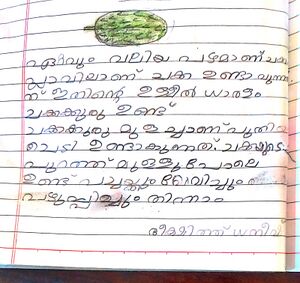 ഏറ്റവും വലിയ പഴമാണ് ചക്ക
പ്ലാവിലാണ് ചക്ക ഉണ്ടാവുന്ന
ത് ഇതിന്റെ ഉള്ളിൽ ധാരളം
ചക്കക്കുരു ഉണ്ട്
ചക്കക്കുരു മുള ച്ചാണ് പുതിയ
ചെടി ഉണ്ടാകുന്നത് ചക്കയുടെ
പുറത്ത് മുള്ളു പോലെ
ഉണ്ട് പച്ചയ്ക്കും വേവിച്ചും
പഴുപ്പിച്ചും തിന്നാം